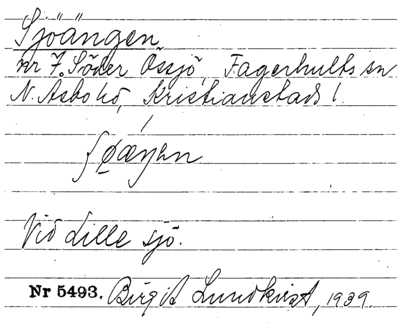 Sjöängen
nr 7. Söder Össjö, Fagerhults sn
N. Åsbo hd, Kristianstads l.
Vid Lille sjö.
Nr 5493. Birgit Lundkvist, 1939.